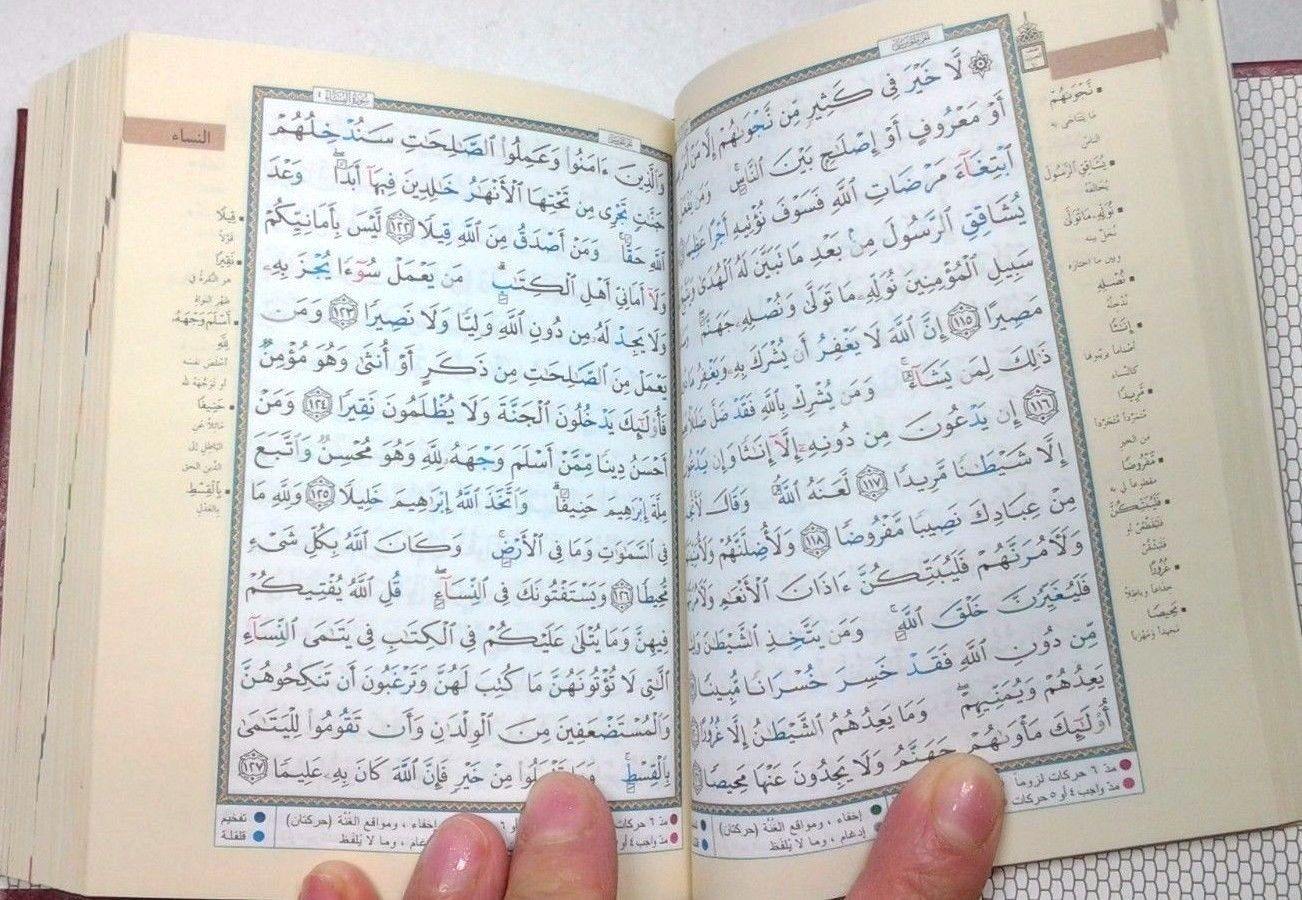 لَّا خَيْرَ فِي كَثِيرٍ مِّن نَّجْوَىٰهُمْ إِلَّا مَنْ أَمَرَ
أَوْ مَعْرُوفٍ أَوْ إِصْلَٰحٍۭ بَيْنَ ٱلنَّاسِۚ وَمَن يَفْعَلْ
ٱبْتِغَآءَ مَرْضَاتِ ٱللَّهِ فَسَوْفَ نُؤْتِيهِ أَجْرًا عَظِيمًا
يُشَاقِقِ ٱلرَّسُولَ مِنۢ بَعْدِ مَا تَبَيَّنَ لَهُ ٱلْهُدَىٰ
سَبِيلِ ٱلْمُؤْمِنِينَ نُوَلِّهِۦ مَا تَوَلَّىٰ وَنُصْلِهِۦ جَهَنَّمَۖ
مَصِيرًا ١١٥ إِنَّ ٱللَّهَ لَا يَغْفِرُ أَن يُشْرَكَ بِهِۦ وَيَغْفِرُ مَا
ذَٰلِكَ لِمَن يَشَآءُۚ وَمَن يُشْرِكْ بِٱللَّهِ فَقَدْ ضَلَّ
١١٦ إِن يَدْعُونَ مِن دُونِهِۦٓ إِلَّآ إِنَٰثًا وَإِن
إِلَّا شَيْطَٰنًا مَّرِيدًا ١١٧ لَّعَنَهُ ٱللَّهُۘ وَقَالَ
مِنْ عِبَادِكَ نَصِيبًا مَّفْرُوضًا ١١٨ وَلَأُضِلَّنَّهُمْ
وَلَأٓمُرَنَّهُمْ فَلَيُبَتِّكُنَّ ءَاذَانَ ٱلْأَنْعَٰمِ
فَلَيُغَيِّرُنَّ خَلْقَ ٱللَّهِۚ وَمَن يَتَّخِذِ ٱلشَّيْطَٰنَ
مِّن دُونِ ٱللَّهِ فَقَدْ خَسِرَ خُسْرَانًا مُّبِينًا
يَعِدُهُمْ وَيُمَنِّيهِمْۖ وَمَا يَعِدُهُمُ ٱلشَّيْطَٰنُ إِلَّا غُرُورًا
أُو۟لَٰٓئِكَ مَأْوَىٰهُمْ جَهَنَّمُ وَلَا يَجِدُونَ عَنْهَا مَحِيصًا
نَّجْوَىٰهُمْ
مَا يَتَنَاجَى بِهِ
النَّاسُ
يُشَاقِقِ ٱلرَّسُولَ
يُخَالِفْهُ
نُوَلِّهِۦ مَا تَوَلَّىٰ
نُخَلِّ بينه
وبين ما اختاره
نُصْلِهِۦ
نُدْخِلْهُ
إِنَٰثًا
أصْنَاماً يزيّنونها
كالنّساء
مَّرِيدًا
مُتَمَرِّداً مُتَجَرِّداً
من الخير
مَّفْرُوضًا
مقطوعاً لي به
فَلَيُبَتِّكُنَّ
فَلَيُقَطِّعُنَّ أو
فَلَيَشُقُّنَّ
غُرُورًا
خداعاً وباطلاً
مَحِيصًا
مَحِيداً وَمَهْرَباً
مدّ ٦ حركات لزوماً
مدّ واجب ٤ أو ٥ حركات
إخفاء ، ومواقع الغُنَّة (حركتان)
إدغام ، وما لا يُلفَظ
سُورَةُ النِّسَاءِ ٤
وَٱلَّذِينَ ءَامَنُوا۟ وَعَمِلُوا۟ ٱلصَّٰلِحَٰتِ سَنُدْخِلُهُمْ
جَنَّٰتٍ تَجْرِى مِن تَحْتِهَا ٱلْأَنْهَٰرُ خَٰلِدِينَ فِيهَآ أَبَدًاۖ وَعْدَ
ٱللَّهِ حَقًّاۚ وَمَنْ أَصْدَقُ مِنَ ٱللَّهِ قِيلًا ١٢٢ لَّيْسَ بِأَمَانِيِّكُمْ
وَلَآ أَمَانِىِّ أَهْلِ ٱلْكِتَٰبِۗ مَن يَعْمَلْ سُوٓءًا يُجْزَ بِهِۦ
وَلَا يَجِدْ لَهُۥ مِن دُونِ ٱللَّهِ وَلِيًّا وَلَا نَصِيرًا ١٢٣ وَمَن
يَعْمَلْ مِنَ ٱلصَّٰلِحَٰتِ مِن ذَكَرٍ أَوْ أُنثَىٰ وَهُوَ مُؤْمِنٌ
فَأُو۟لَٰٓئِكَ يَدْخُلُونَ ٱلْجَنَّةَ وَلَا يُظْلَمُونَ نَقِيرًا ١٢٤ وَمَنْ
أَحْسَنُ دِينًا مِّمَّنْ أَسْلَمَ وَجْهَهُۥ لِلَّهِ وَهُوَ مُحْسِنٌ وَٱتَّبَعَ
مِلَّةَ إِبْرَٰهِيمَ حَنِيفًاۗ وَٱتَّخَذَ ٱللَّهُ إِبْرَٰهِيمَ خَلِيلًا ١٢٥ وَلِلَّهِ مَا
فِى ٱلسَّمَٰوَٰتِ وَمَا فِى ٱلْأَرْضِۚ وَكَانَ ٱللَّهُ بِكُلِّ شَىْءٍ
مُّحِيطًا ١٢٦ وَيَسْتَفْتُونَكَ فِى ٱلنِّسَآءِۖ قُلِ ٱللَّهُ يُفْتِيكُمْ
فِيهِنَّ وَمَا يُتْلَىٰ عَلَيْكُمْ فِى ٱلْكِتَٰبِ فِى يَتَٰمَى ٱلنِّسَآءِ
ٱلَّٰتِى لَا تُؤْتُونَهُنَّ مَا كُتِبَ لَهُنَّ وَتَرْغَبُونَ أَن تَنكِحُوهُنَّ
وَٱلْمُسْتَضْعَفِينَ مِنَ ٱلْوِلْدَٰنِ وَأَن تَقُومُوا۟ لِلْيَتَٰمَىٰ
بِٱلْقِسْطِۚ وَمَا تَفْعَلُوا۟ مِنْ خَيْرٍ فَإِنَّ ٱللَّهَ كَانَ بِهِۦ عَلِيمًا ١٢٧
النساء
قِيلًا
قَوْلاً
نَقِيرًا
هو النُّقرة في
ظَهْرِ النواة
أَسْلَمَ وَجْهَهُۥ
لِلَّهِ
أخْلَصَ نفسه
أو تَوَجُّهَهُ لله
حَنِيفًا
مَائِلاً عَنِ
الباطل إلى
الدِّين الحق
بِٱلْقِسْطِ
بالعَدْلِ
مدّ ٦ حركات
مدّ واجب ٤ أو
إخفاء ، ومواقع الغُنَّة (حركتان)
إدغام ، وما لا يُلفَظ
تفخيم
قلقلة